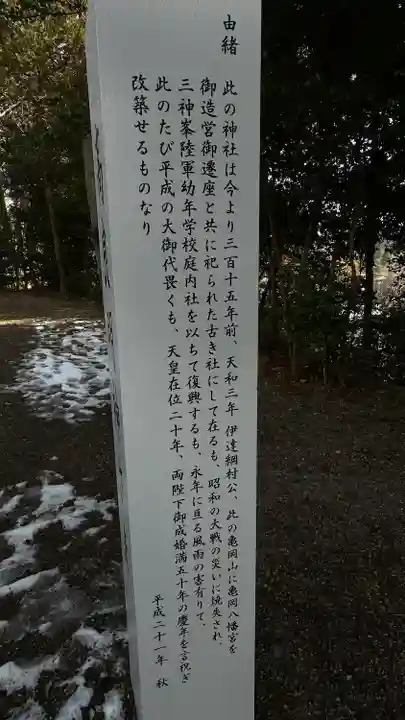 由緒
此の神社は今より三百十五年前、天和三年 伊達綱村公、此の亀岡山に亀岡八幡宮を
御造営御遷座と共に祀られた古き社にして在るも、昭和の大戦の災いに焼失され、
三神峯陸軍幼年学校庭内社を以ちて復興するも、永年に亘る風雨の害有りて、
此のたび平成の大御代畏くも、天皇在位二十年、両陛下御成婚満五十年の慶年を言祝ぎ
改築せるものなり
平成二十一年 秋